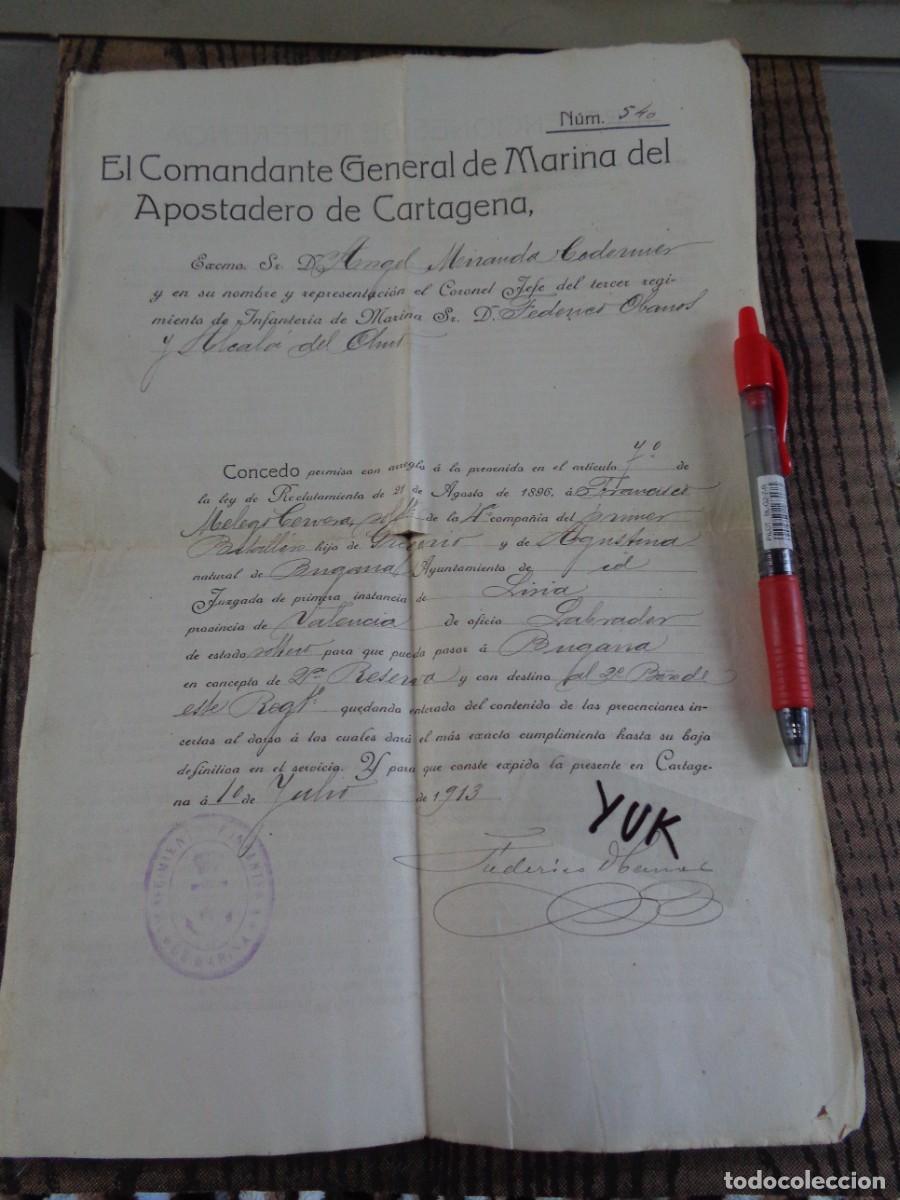 Núm. 540
El Comandante General de Marina del
Apostadero de Cartagena,
Excmo. Sr. D. Angel Miranda
y en su nombre y representación el Coronel Jefe del tercer regi-
miento de Infantería de Marina Sr. D. Federico Obanos
y Alcala del Olmo
Concedo permiso con arreglo á lo prevenido en el artículo 7º de
la ley de Reclutamiento de 21 de Agosto de 1896, á Francisco
Cervera, de la 4ª compañía del primer
Batallón hijo de Gregorio y de Agustina
natural de Bugarra Ayuntamiento de id
Juzgado de primera instancia de Liria
provincia de Valencia de oficio Labrador
de estado soltero para que pueda pasar á Bugarra
en concepto de 2ª Reserva y con destino al 2º Bón de
este Regtº quedando enterado del contenido de las prevenciones in-
certas al dorso á las cuales dará el más exacto cumplimiento hasta su baja
definitiva en el servicio. Y para que conste expido la presente en Cartage-
na á 1º de Julio de 1913
YUK
Federico Obanos
todocoleccion